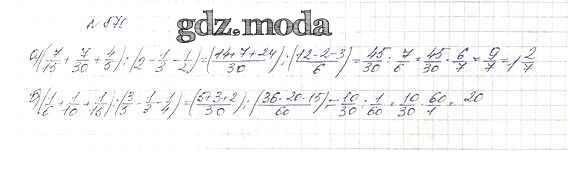 № 876
gdz.moda
а) (7/15 + 7/30 + 4/5) : (2 - 1/3 - 1/2) = (14+7+24/30) : (12-2-3/6) = 45/30 : 7/6 = 45/30 · 6/7 = 9/7 = 1 2/7
б) (1/6 + 1/10 + 1/15) : (3/5 - 1/3 - 1/4) = (5+3+2/30) : (36-20-15/60) = 10/30 : 1/60 = 10/30 · 60/1 = 20